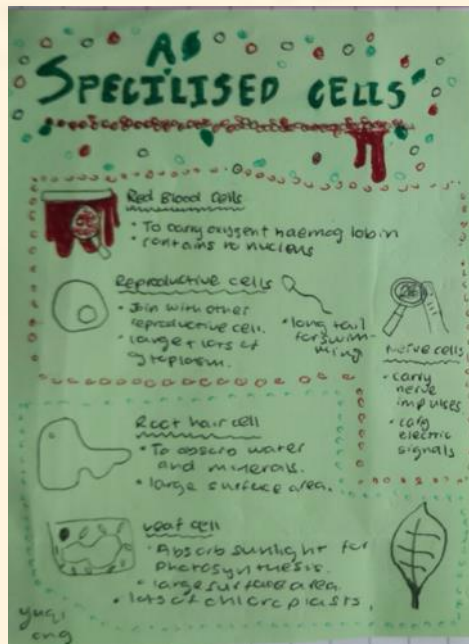 A
SPECILISED CELLS
Red Blood Cells
• To carry oxygen + haemoglobin
• contains no nucleus
Reproductive cells
• Join with other
reproductive cell.
• large + lots of
cytoplasm.
• long tail
for swim-
ming
Nerve cells
• carry
nerve
impulses
• carry
electric
signals
Root hair cell
• To absorb water
and minerals.
• large surface area.
Leaf cell
• Absorb sunlight for
photosynthesis.
• large surface area.
• lots of chloroplasts.
yuqi